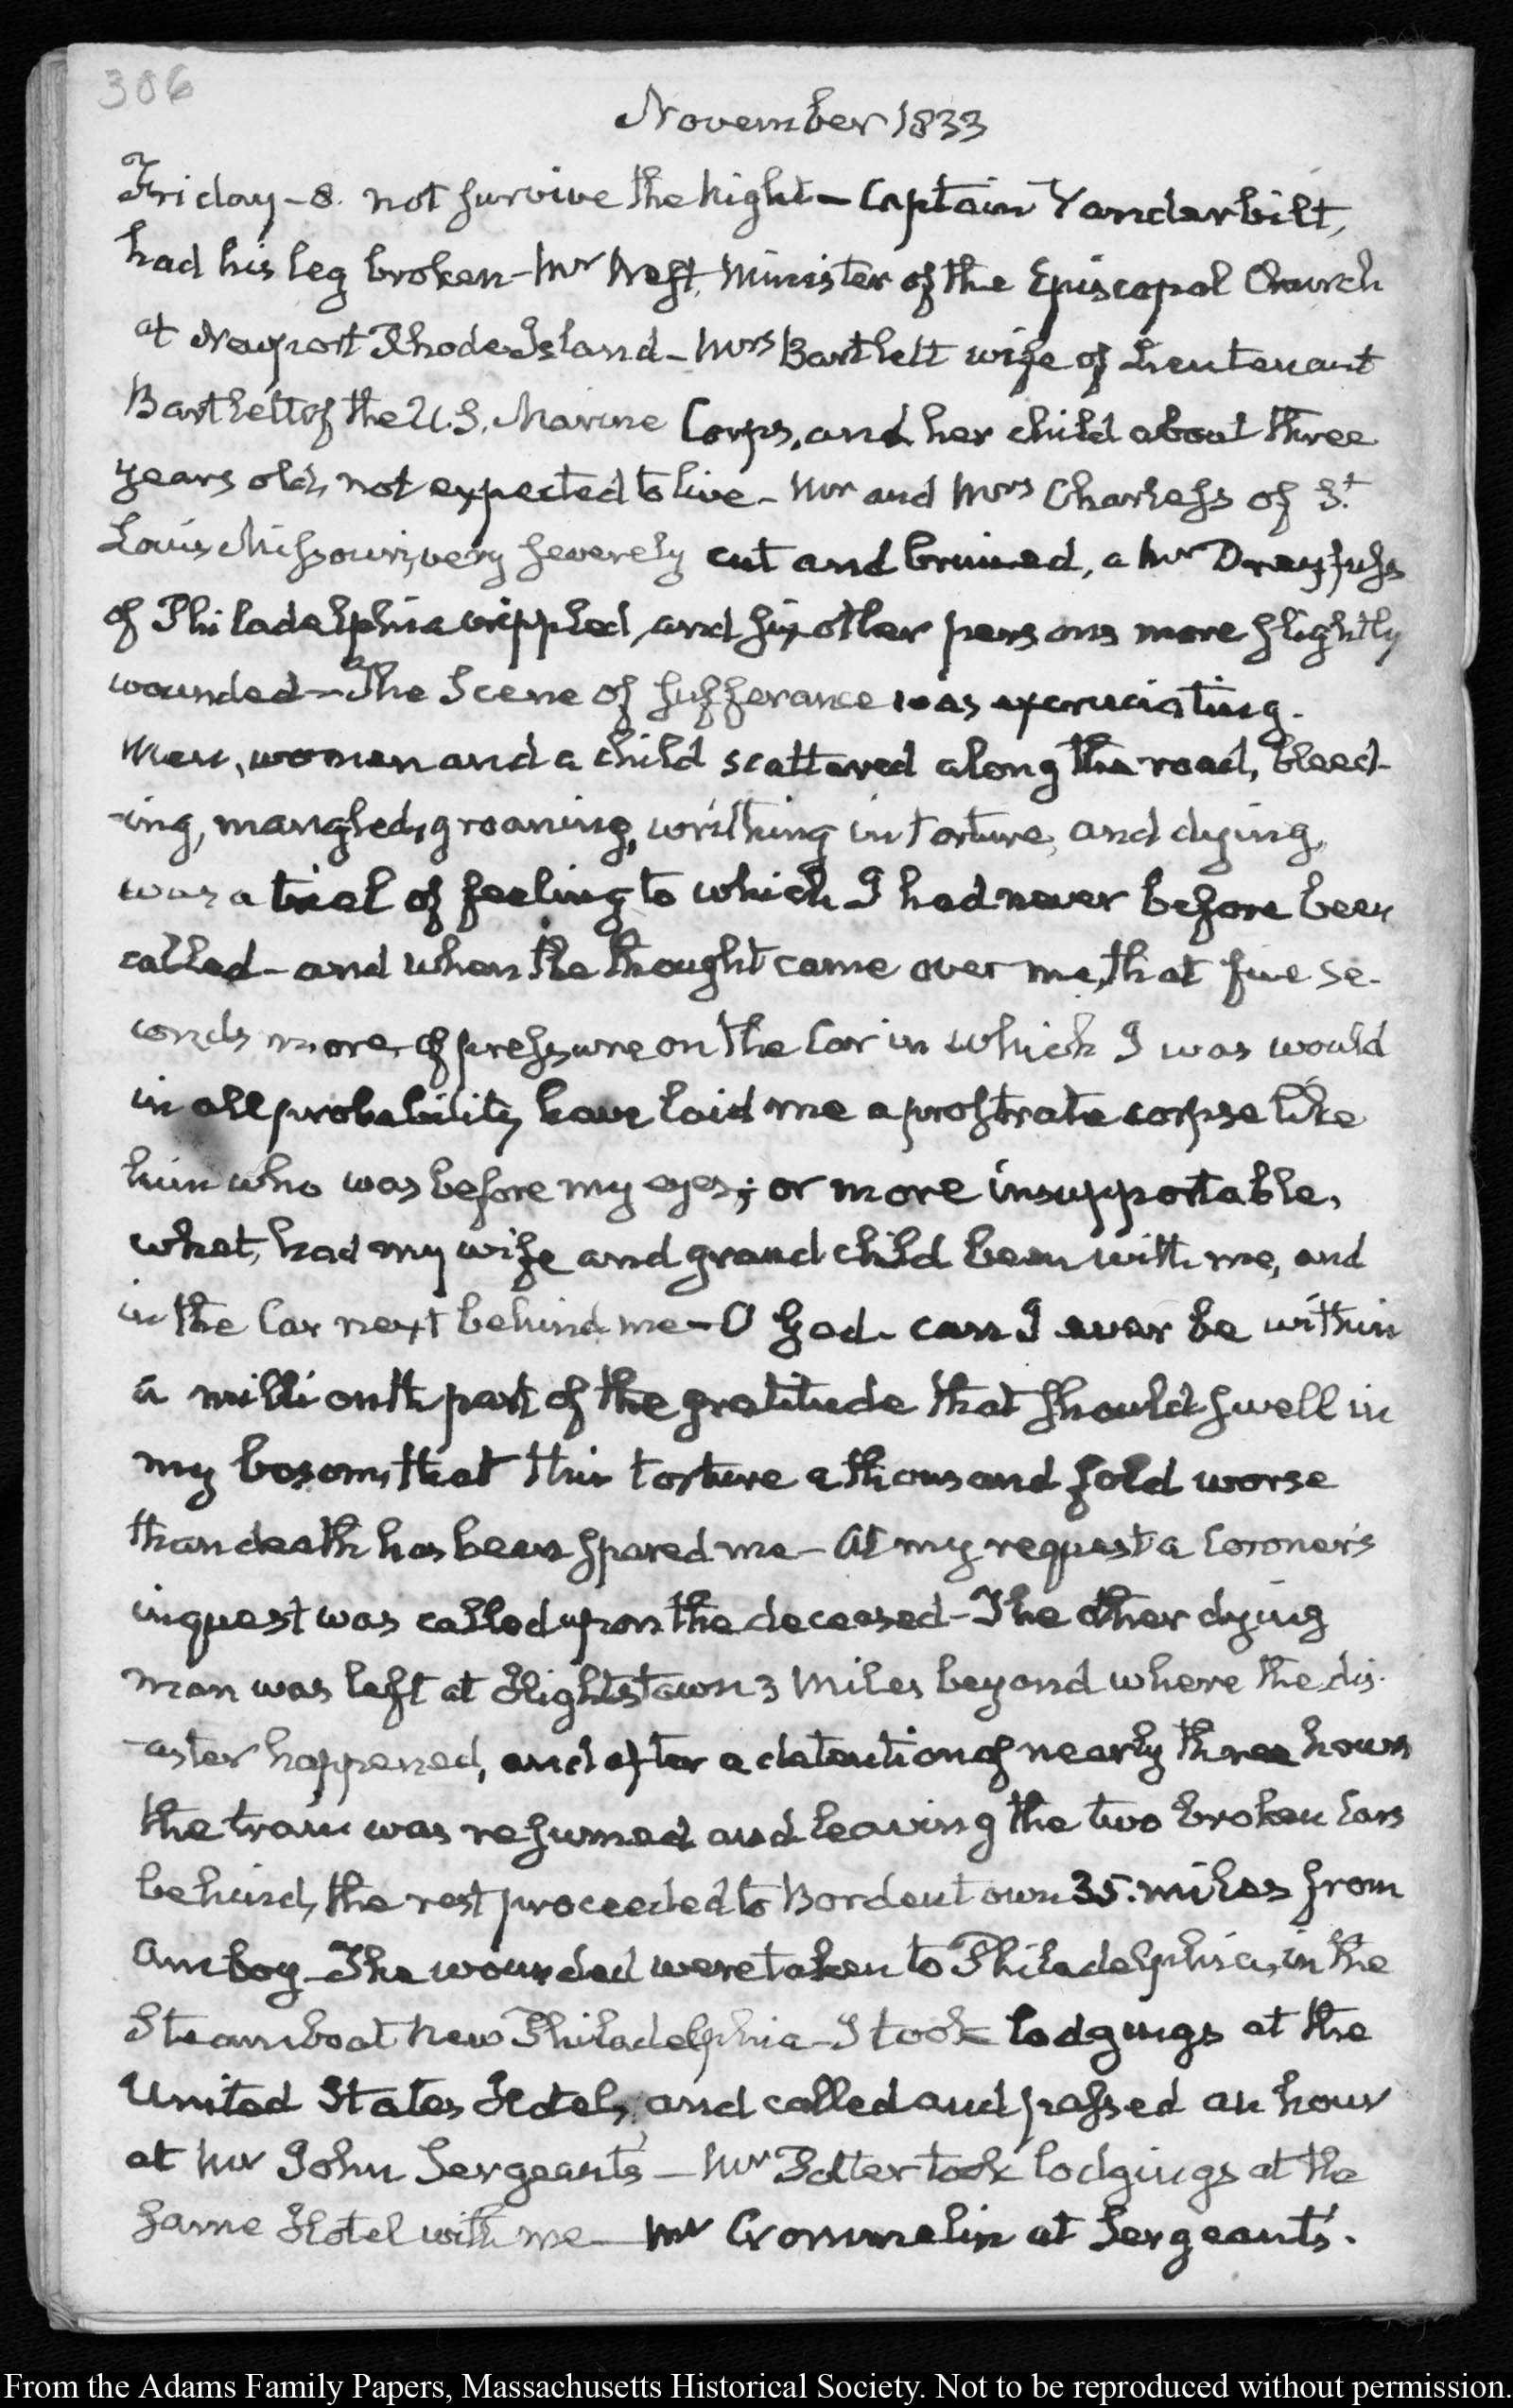 306
November 1833
Friday - 8. not survive the night - Captain Vanderbilt,
had his leg broken - Mr West, Minister of the Episcopal Church
at Newport Rhode Island - Mrs Bartlett wife of Lieutenant
Bartlett of the U.S. Marine Corps, and her child about three
years old, not expected to live - Mr and Mrs Charless of St
Louis Missouri, very severely cut and bruised, a Mr Dreyfuss
of Philadelphia crippled, and six other persons more slightly
wounded - The scene of sufferance was excruciating.
Men, women and a child scattered along the road, bleed-
-ing, mangled, groaning, writhing in torture, and dying,
was a trial of feeling to which I had never before been
called - and when the thought came over me, that five se-
conds more, of pressure on the Car in which I was would
in all probability have laid me a prostrate corpse like
him who was before my eyes; or more insupportable,
what, had my wife and grandchild been with me, and
in the Car next behind me - O God. can I ever be within
a millionth part of the gratitude that should swell in
my bosom, that this torture a thousand fold worse
than death has been spared me - At my request a Coroner's
inquest was called upon the deceased - The other dying
man was left at Hightstown 3 Miles beyond where the dis-
-aster happened, and after a detention of nearly three hours
the train was resumed and leaving the two broken Cars
behind, the rest proceeded to Bordentown 35. miles from
Amboy - The wounded were taken to Philadelphia, in the
Steamboat New Philadelphia - I took lodgings at the
United States Hotel, and called and passed an hour
at Mr John Sergeant's - Mr Potter took lodgings at the
same Hotel with me - Mr Crommelin at Sergeant's.
From the Adams Family Papers, Massachusetts Historical Society. Not to be reproduced without permission.